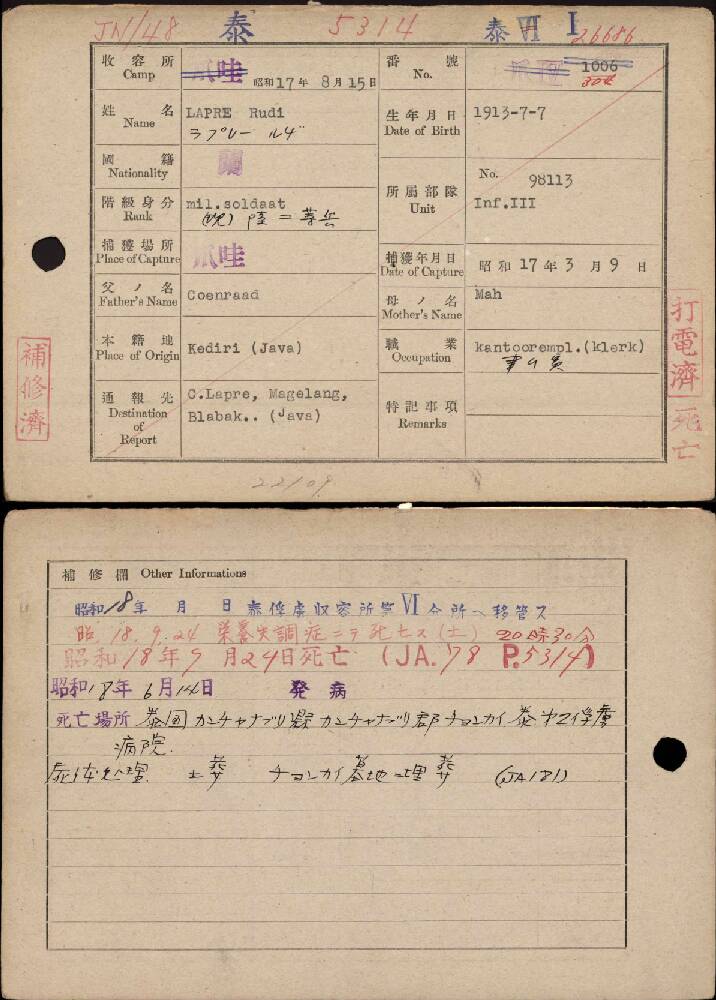 JN/148 泰 5314 泰 VI I 26686
收容所 Camp 爪哇 昭和17年 8月15日
番號 No. 爪哇 1006
姓名 Name LAPRE Rudi
ラプレー ルヂ
生年月日 Date of Birth 1913-7-7
國籍 Nationality 蘭
所屬部隊 Unit No. 98113
Inf.III
階級身分 Rank mil.soldaat
捕獲場所 Place of Capture 爪哇
捕獲年月日 Date of Capture 昭和 17年 3月 9日
父ノ名 Father's Name Coenraad
母ノ名 Mother's Name Mah
本籍地 Place of Origin Kediri (Java)
職業 Occupation kantoorempl.(klerk)
通報先 Destination of Report C.Lapre, Magelang,
Blabak.. (Java)
特記事項 Remarks
補修濟
打電濟 死亡
22109
補修欄 Other Informations
昭和18年 月 日 泰俘虜収容所第VI分所へ移管ス
昭.18.9.24 榮養失調症ニテ死亡ス(土) 20時30分
昭和18年9月24日死亡 (JA.78 P.5314)
昭和18年6月14日 発病
死亡場所 泰国カンチャナブリ県カンチャナブリ郡チョンカイ泰
病院.
土葬 チョンカイ墓地ニ埋葬 (JA181)